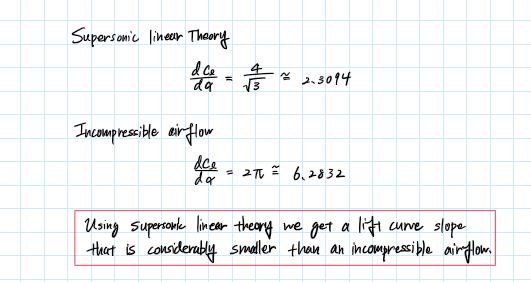 Supersonic linear Theory
dCl/dα = 4/√3 ≅ 2.3094
Incompressible airflow
dCl/dα = 2π ≅ 6.2832
Using supersonic linear theory we get a lift curve slope
that is considerably smaller than an incompressible airflow.